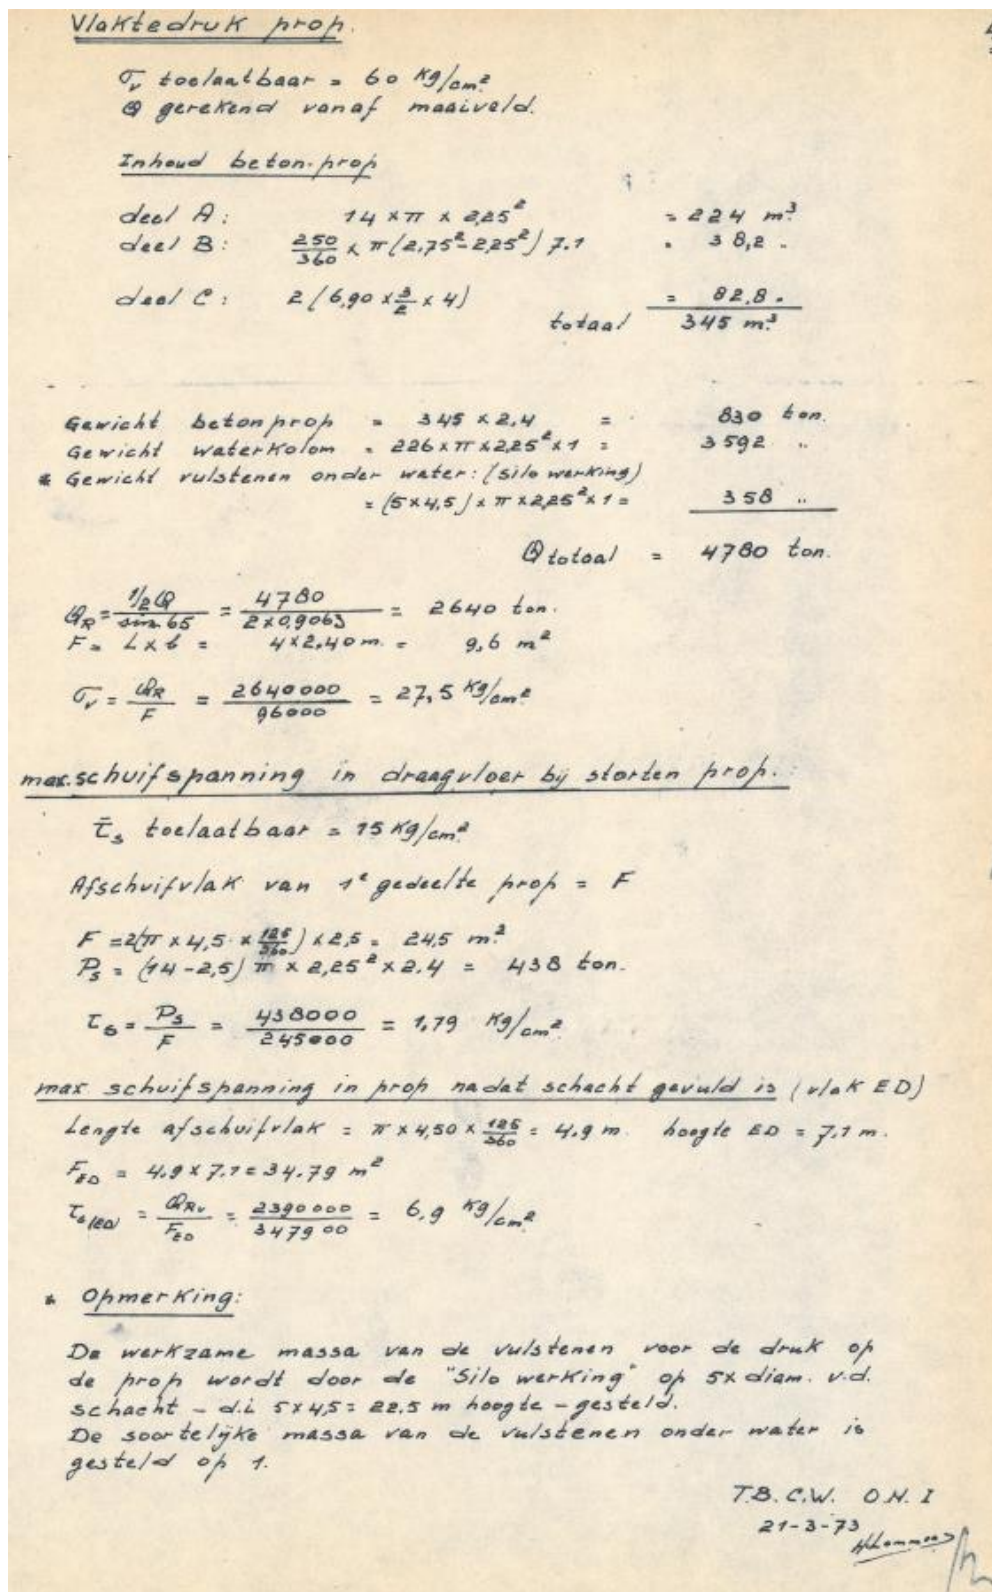 Vlaktedruk prop.
σv toelaatbaar = 60 Kg/cm²
Q gerekend vanaf maaiveld.
Inhoud beton-prop
deel A: 14 x π x 2,25² = 224 m³
deel B: 250/360 x π (2,75² - 2,25²) 7.1 " 38,2 "
deel C: 2 (6,90 x 3/2 x 4) = 82,8 "
totaal 345 m³
Gewicht betonprop = 345 x 2.4 = 830 ton.
Gewicht waterkolom = 226 x π x 2,25² x 1 = 3592 "
* Gewicht vulstenen onder water: (silo werking)
= (5 x 4,5) x π x 2,25² x 1 = 358 "
Q totaal = 4780 ton.
QR = 1/2 Q / sin 65 = 4780 / 2 x 0,9063 = 2640 ton.
F = L x b = 4 x 2.40 m. = 9,6 m²
σv = QR / F = 2640000 / 96000 = 27,5 Kg/cm²
max. schuifspanning in draagvloer bij storten prop.:
τ̄s toelaatbaar = 15 Kg/cm²
Afschuifvlak van 1e gedeelte prop = F
F = 2(π x 4,5 x 125/360) x 2,5 = 24,5 m²
Ps = (14 - 2,5) π x 2,25² x 2.4 = 438 ton.
τs = Ps / F = 438000 / 245000 = 1,79 Kg/cm²
max schuifspanning in prop nadat schacht gevuld is (vlak ED)
Lengte afschuifvlak = π x 4,50 x 125/360 = 4.9 m. hoogte ED = 7.1 m.
FED = 4.9 x 7.1 = 34.79 m²
τs(ED) = QRv / FED = 2390000 / 347900 = 6,9 Kg/cm²
* Opmerking:
De werkzame massa van de vulstenen voor de druk op
de prop wordt door de "Silo werking" op 5x diam. v.d.
schacht - d.i. 5 x 4,5 = 22.5 m hoogte - gesteld.
De soortelijke massa van de vulstenen onder water is
gesteld op 1.
T.B. C.W. O.N. I
21-3-73